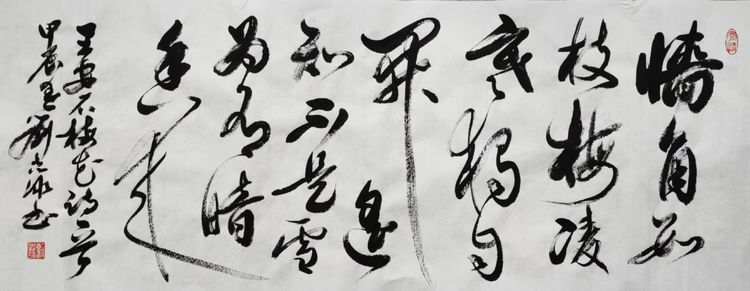 墙角数
枝梅凌
寒独自
開遥
知不是雪
为有暗
香来
王安石梅花诗一首
甲辰夏劉书